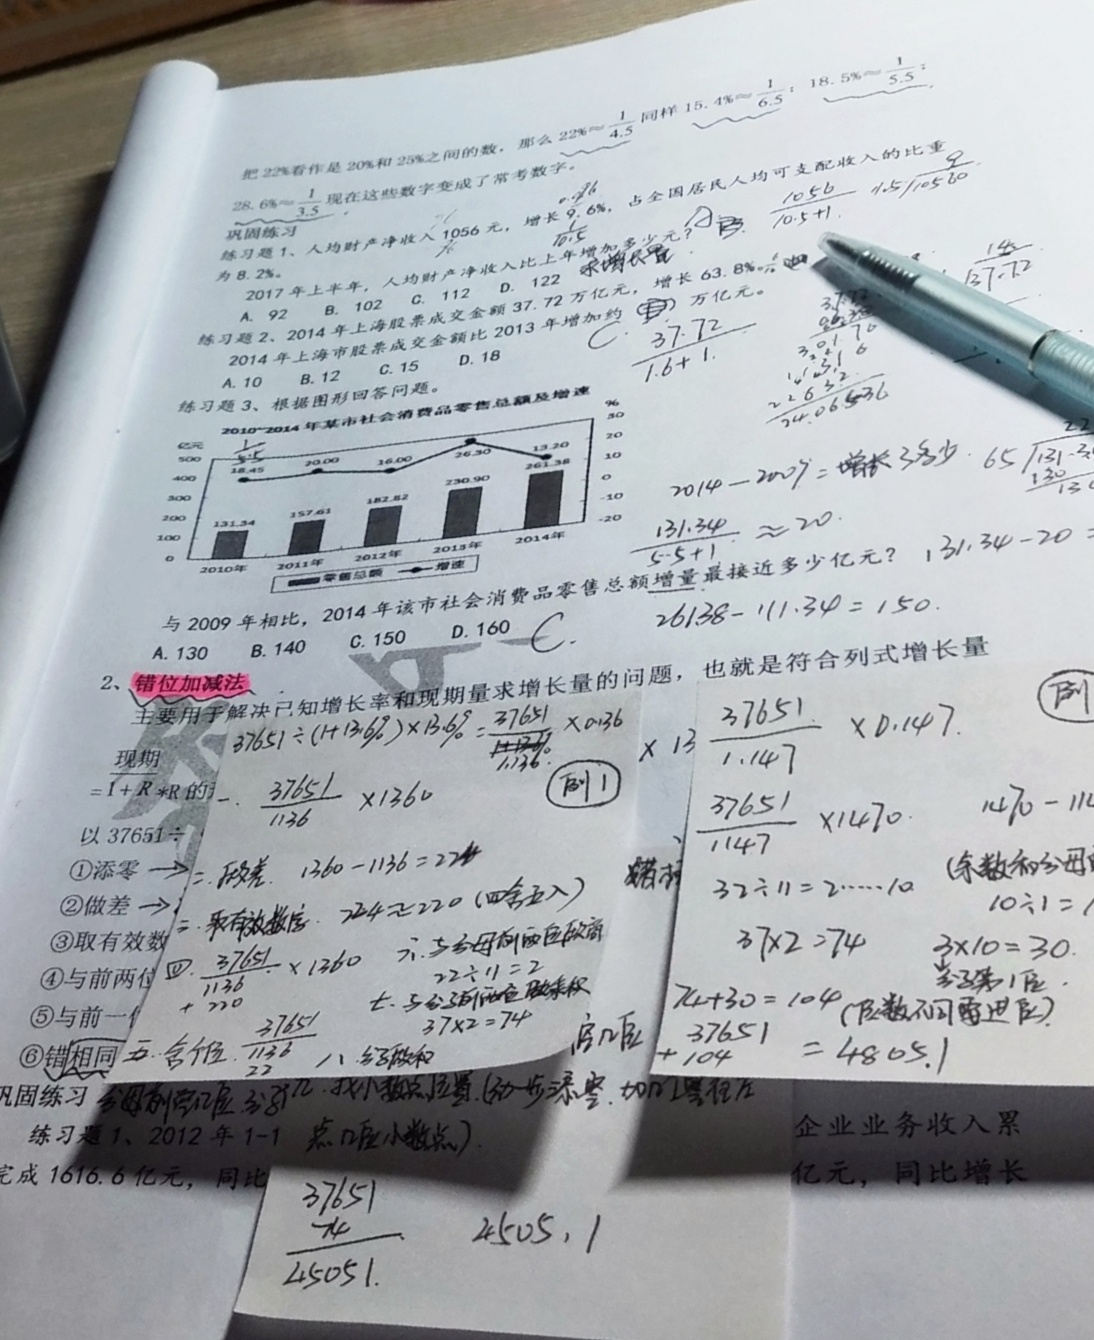 把22%看作是20%和25%之间的数，那么22%≈1/4.5 同样15.4%≈1/6.5；18.5%≈1/5.5；
28.6%≈1/3.5 现在这些数字变成了常考数字。
巩固练习
练习题1、人均财产净收入1056元，增长9.6%，占全国居民人均可支配收入的比重
为8.2%。
0.096
1/10.5
1056/10.5+1.
2017年上半年，人均财产净收入比上年增加多少元？
求增长量
A. 92 B. 102 C. 112 D. 122
练习题2、2014年上海股票成交金额37.72万亿元，增长63.8%。
2014年上海市股票成交金额比2013年增加约 万亿元。
A.10 B.12 C.15 D.18
C.
37.72/1.6+1.
练习题3、根据图形回答问题。
2010~2014年某市社会消费品零售总额及增速
亿元 %
500 400 300 200 100 0
30 20 10 0 -10 -20
1/5.5
18.45 20.00 16.00 26.30 13.20
131.34 157.61 182.82 230.90 261.38
2010年 2011年 2012年 2013年 2014年
零售总额 增速
2014-2009=增长多少.
131.34/5.5+1 ≈20.
131.34-20=
与2009年相比，2014年该市社会消费品零售总额增量最接近多少亿元？
26138-111.34=150.
A.130 B.140 C.150 D.160
C.
2、错位加减法
主要用于解决已知增长率和现期量求增长量的问题，也就是符合列式增长量
现期
=1+R*R的
以37651÷
①添零→
②做差→
③取有效数
④与前两位
⑤与前一
⑥错相同
巩固练习
练习题1、2012年1-1
企业业务收入累
完成1616.6亿元，同比
亿元，同比增长
37651÷(1+13.6%)×13.6%=37651/1.136×0.136
例1
一. 37651/1136 ×1360
二. 做差. 1360-1136=224
三. 取有效数字. 224≈220(四舍五入)
四. 37651/1136+220 ×1360
五. 舍个位. 37651/1136 22
六. 与分母前两位做商
22÷11=2
七. 与分子前两位做乘积
37×2=74
八. 分子做和
九. 找小数点位置
点几位小数点)
37651
74
45051.
4505.1
例
37651/1.147 ×0.147.
37651/1147 ×1470.
1470-114
32÷11=2……10
10÷1=1
37×2=74
3×10=30.
74+30=104
37651
+104
=4805.1